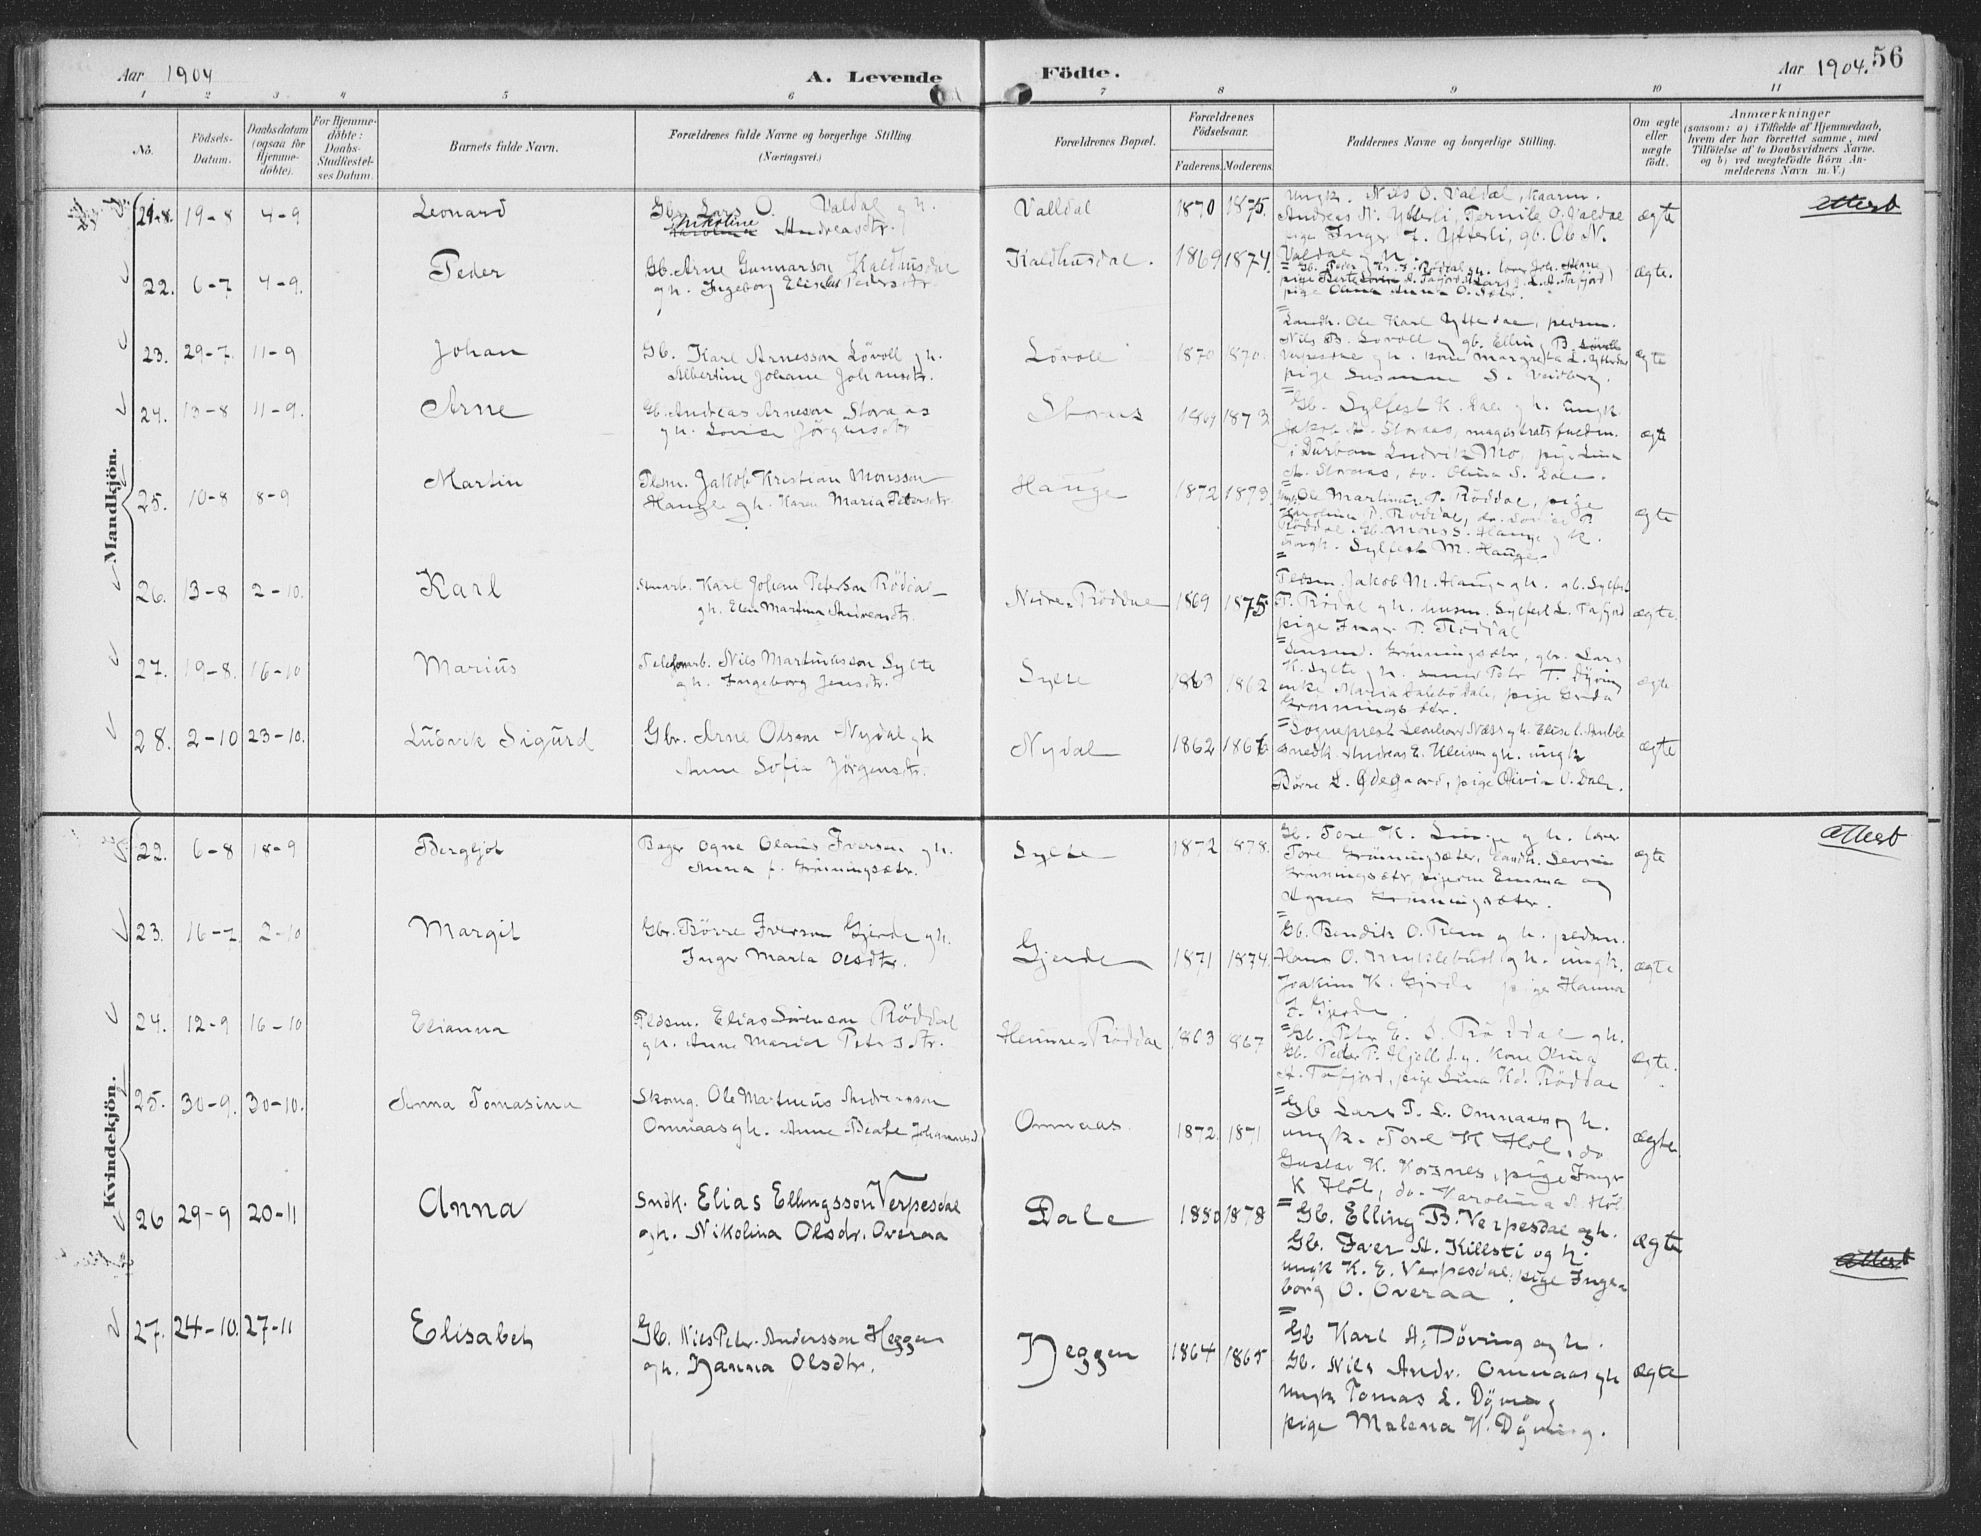 Aar 1904
A. Levende
Födte.
Aar 1904. 56
1 2 3 4 5 6 7 8 9 10 11
No.
Födsels-
Datum.
Daabsdatum
(ogsaa for
Hjemme-
döbte).
For Hjemme-
döbte:
Daabs-
Stadfæstel-
ses Datum.
Barnets fulde Navn.
Forældrenes fulde Navne og borgerlige Stilling
(Næringsvei.)
Forældrenes Bopæl.
Forældrenes
Födselsaar.
Faderens. Moderens.
Faddernes Navne og borgerlige Stilling.
Om ægte
eller
uægte
födt.
Anmærkninger
(saasom: a) i Tilfælde af Hjemmedaab,
hvem der har forrettet samme, med
Tilföielse af to Daabsvidners Navne,
og b) ved uægtefödte Börn An-
melderens Navn m. V.)
Mandkjön.
21. 19-8 4-9 Leonard
Gbr. Lars O. Valdal gh.
Nikoline Andreasdtr.
Valldal 1870 1875.
Ungk. Nils O. Valdal, kaarm.
Andreas N. Ytterli, Pernile O. Valdal
pige Inger J. Ytterli, gb. Ole N.
Valdal gh.
ægte attest
22. 6-7 4-9. Peder
Gb. Arne Gunnarson Kaldhusdal
gh. Ingeborg Elisabet Pedersdtr.
Kaldhusdal. 1869 1874.
ægte.
23. 29-7. 11-9 Johan
Gb. Karl Arnesson Lövoll gh.
Albertine Johane Johansdtr.
Lövoll 1870 1870.
Landh. Ole Karl Yttedal, pedsm.
Nils B. Lovoll og gb. Elling B. Lövoll
Verpesdal gh. kone Margreta L. Yttedal
pige Susanne S.
ægte
24. 13-8 11-9. Arne
Gb. Andreas Arneson Storaas
gh. Lovise Jörgensdtr
Storaas 1869 1873
Gb. Sylfest K. Dale gh. Ungk.
Jakob A. Storaas, magistratsfuldm.
i Durban Ludvik Mo, pige Lina
A. Storaas, do. Olina S. Dale.
ægte
25. 10-8 8-9 Martin
Plsm. Jakob Kristian Monsson
Hauge gh. Karen Maria Petersdtr.
Hauge 1872 1873.
Ole Martinus P. Röddal, pige
Karoline P. Röddal, do. Lovise P.
Röddal. Gb. Mons S. Hauge gh.
Ungk. Sylfest M. Hauge.
ægte
26. 13-8 2-10. Karl
Karl Johan Peterson Röddal
gh. Elen Martina Andreasdtr.
Nedre-Röddal 1869 1875.
Pldsm. Jakob M. Hauge gh. gb. Sylfest
P. Rödal gh. husm. Sylfest L. Tafjord
pige Inger P. Röddal
ægte.
27. 19-8. 16-10 Marius
Telefonarb. Nils Martinusson Sylte
gh. Ingeborg Jensdtr.
Sylte 1863 1862
Lensmd. Grönningsætr, gbr. Lars
K. Sylte gh. Petr T. Döving
enke Maria Dalebödale, pige Gerda
Grönningsætr.
ægte
28. 2-10 23-10. Ludvik Sigurd
Gbr. Arne Olsson Nydal gh
Anne Sofia Jörgensdtr.
Nydal 1862 1866
Sogneprest Leonhard Næss gh. Elise C. Amble
snedk. Andreas E. Uleivn gh. ungk
Börre L. Ødegaard, pige Olivia O. Dale.
ægte
Kvindekjön.
22. 6-8 18-9 Bergljot
Bager Ogne Olaus Iverson gh.
Anna f. Grönningsætr.
Sylte 1872 878.
Gb. Tore K. Linge gh. lærer
Tore Grönningsæter, landh. Severin
Grönningsætr, pigerne Emma og
Agnes Grönningsæter.
ægte attest
23. 16-7 2-10 Margit
Gbr. Börre Iverson Gjerde gh.
Ingr Marta Olsdtr.
Gjerde 1871 1874.
Gb. Bendik O. Rem gh. pedsm.
Hans O. Myklebust gh. ungk.
Joakim K. Gjerde pige Hanna
I. Gjerde.
ægte
24. 12-9 16-10 Elianna
Pldsm. Elias Sörenson Röddal
gh. Anne Maria Petrsdtr.
Heimre-Röddal 1863 867
Gb. Petr E. S. Röddal gh.
Gb. Peder P. Hjelle gh. Kone Olina
A. Tafjord, pige Lina Kd. Röddal
ægte.
25. 30-9. 30-10. Anna Tomasina
Skomg. Ole Matineus Andersson
Omnaas gh. Anne Beate Johannesd
Omnaas. 1872. 1871
Gb Lars P. L. Omnaas gh.
ungk. Tore K Höl, do
Gustav K. Korsnes, pige Ingr
K Höl, do. Karolina A. Höl
ægte.
26 29-9 20-11 Anna
Sndk. Elias Ellingsson Verpesdal
gh. Nikolina Olsdtr. Overaa
Dale 1880 1878
Gb. Elling B. Verpesdal gh.
Gb. Iver A. Killsti og h.
ungk K. E. Verpesdal, pige Inge-
borg O. Overaa.
ægte attest
27. 24-10. 27-11 Elisabet
Gb. Nils Petr. Andersson Heggen
gh. Hanna Olsdtr.
Heggen 1864 1865
Gb Karl A. Döving og h.
Gb. Nils Andr. Omnaas gh
Ungk Tomas L. Döving
pige Malena K. Döving.
ægte